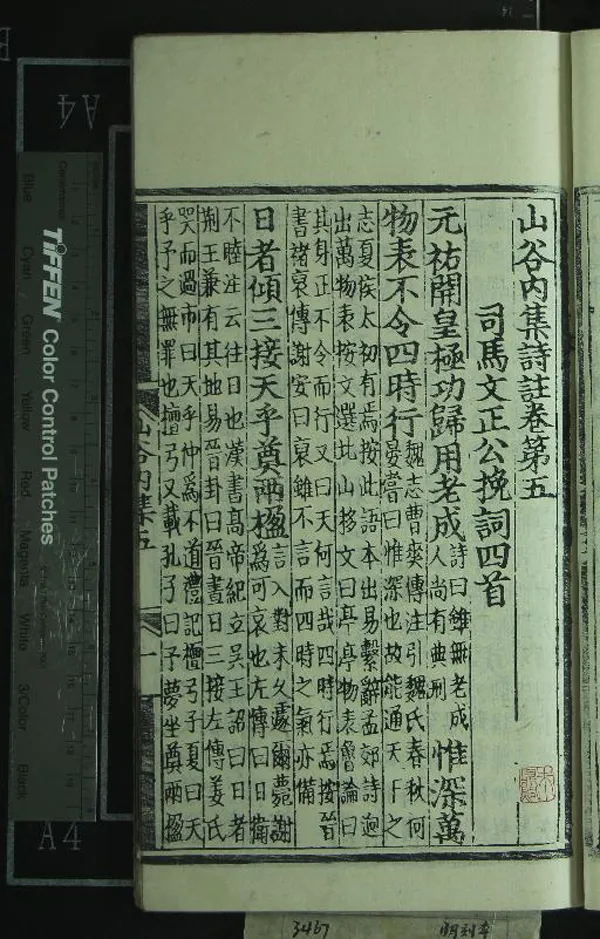 山谷内集詩註卷第五
司馬文正公挽詞四首
元祐開皇極功歸用老成詩曰雖無老成人尚有典刑惟深萬
物表不令四時行魏志曹爽傳注引魏氏春秋何晏嘗曰惟深也故能通天下之
志夏侯太初有焉按此語本出易繫辭孟郊詩迥
出萬物表按文選北山移文曰亭亭物表魯論曰
其身正不令而行又曰天何言哉四時行焉按晉
書褚裒傳謝安曰裒雖不言而四時之氣亦備
日者傾三接天乎奠兩楹言入對未久遽爾薨謝為可哀也左傳曰日衛
不睦注云往日也漢書高帝紀立吴王詔曰日者
荆王兼有其地易晉卦曰晉晝日三接左傳姜氏
哭而過市曰天乎仲為不道禮記檀弓子夏曰天
乎予之無罪也檀弓又載孔子曰予夢坐奠兩楹
山谷内集五
一
A4
TIFFEN Color Control Patches
Blue
Cyan
Green
Yellow
Red
Magenta
White
3/Color
Black
Centimetres
A4
3467
明刻本